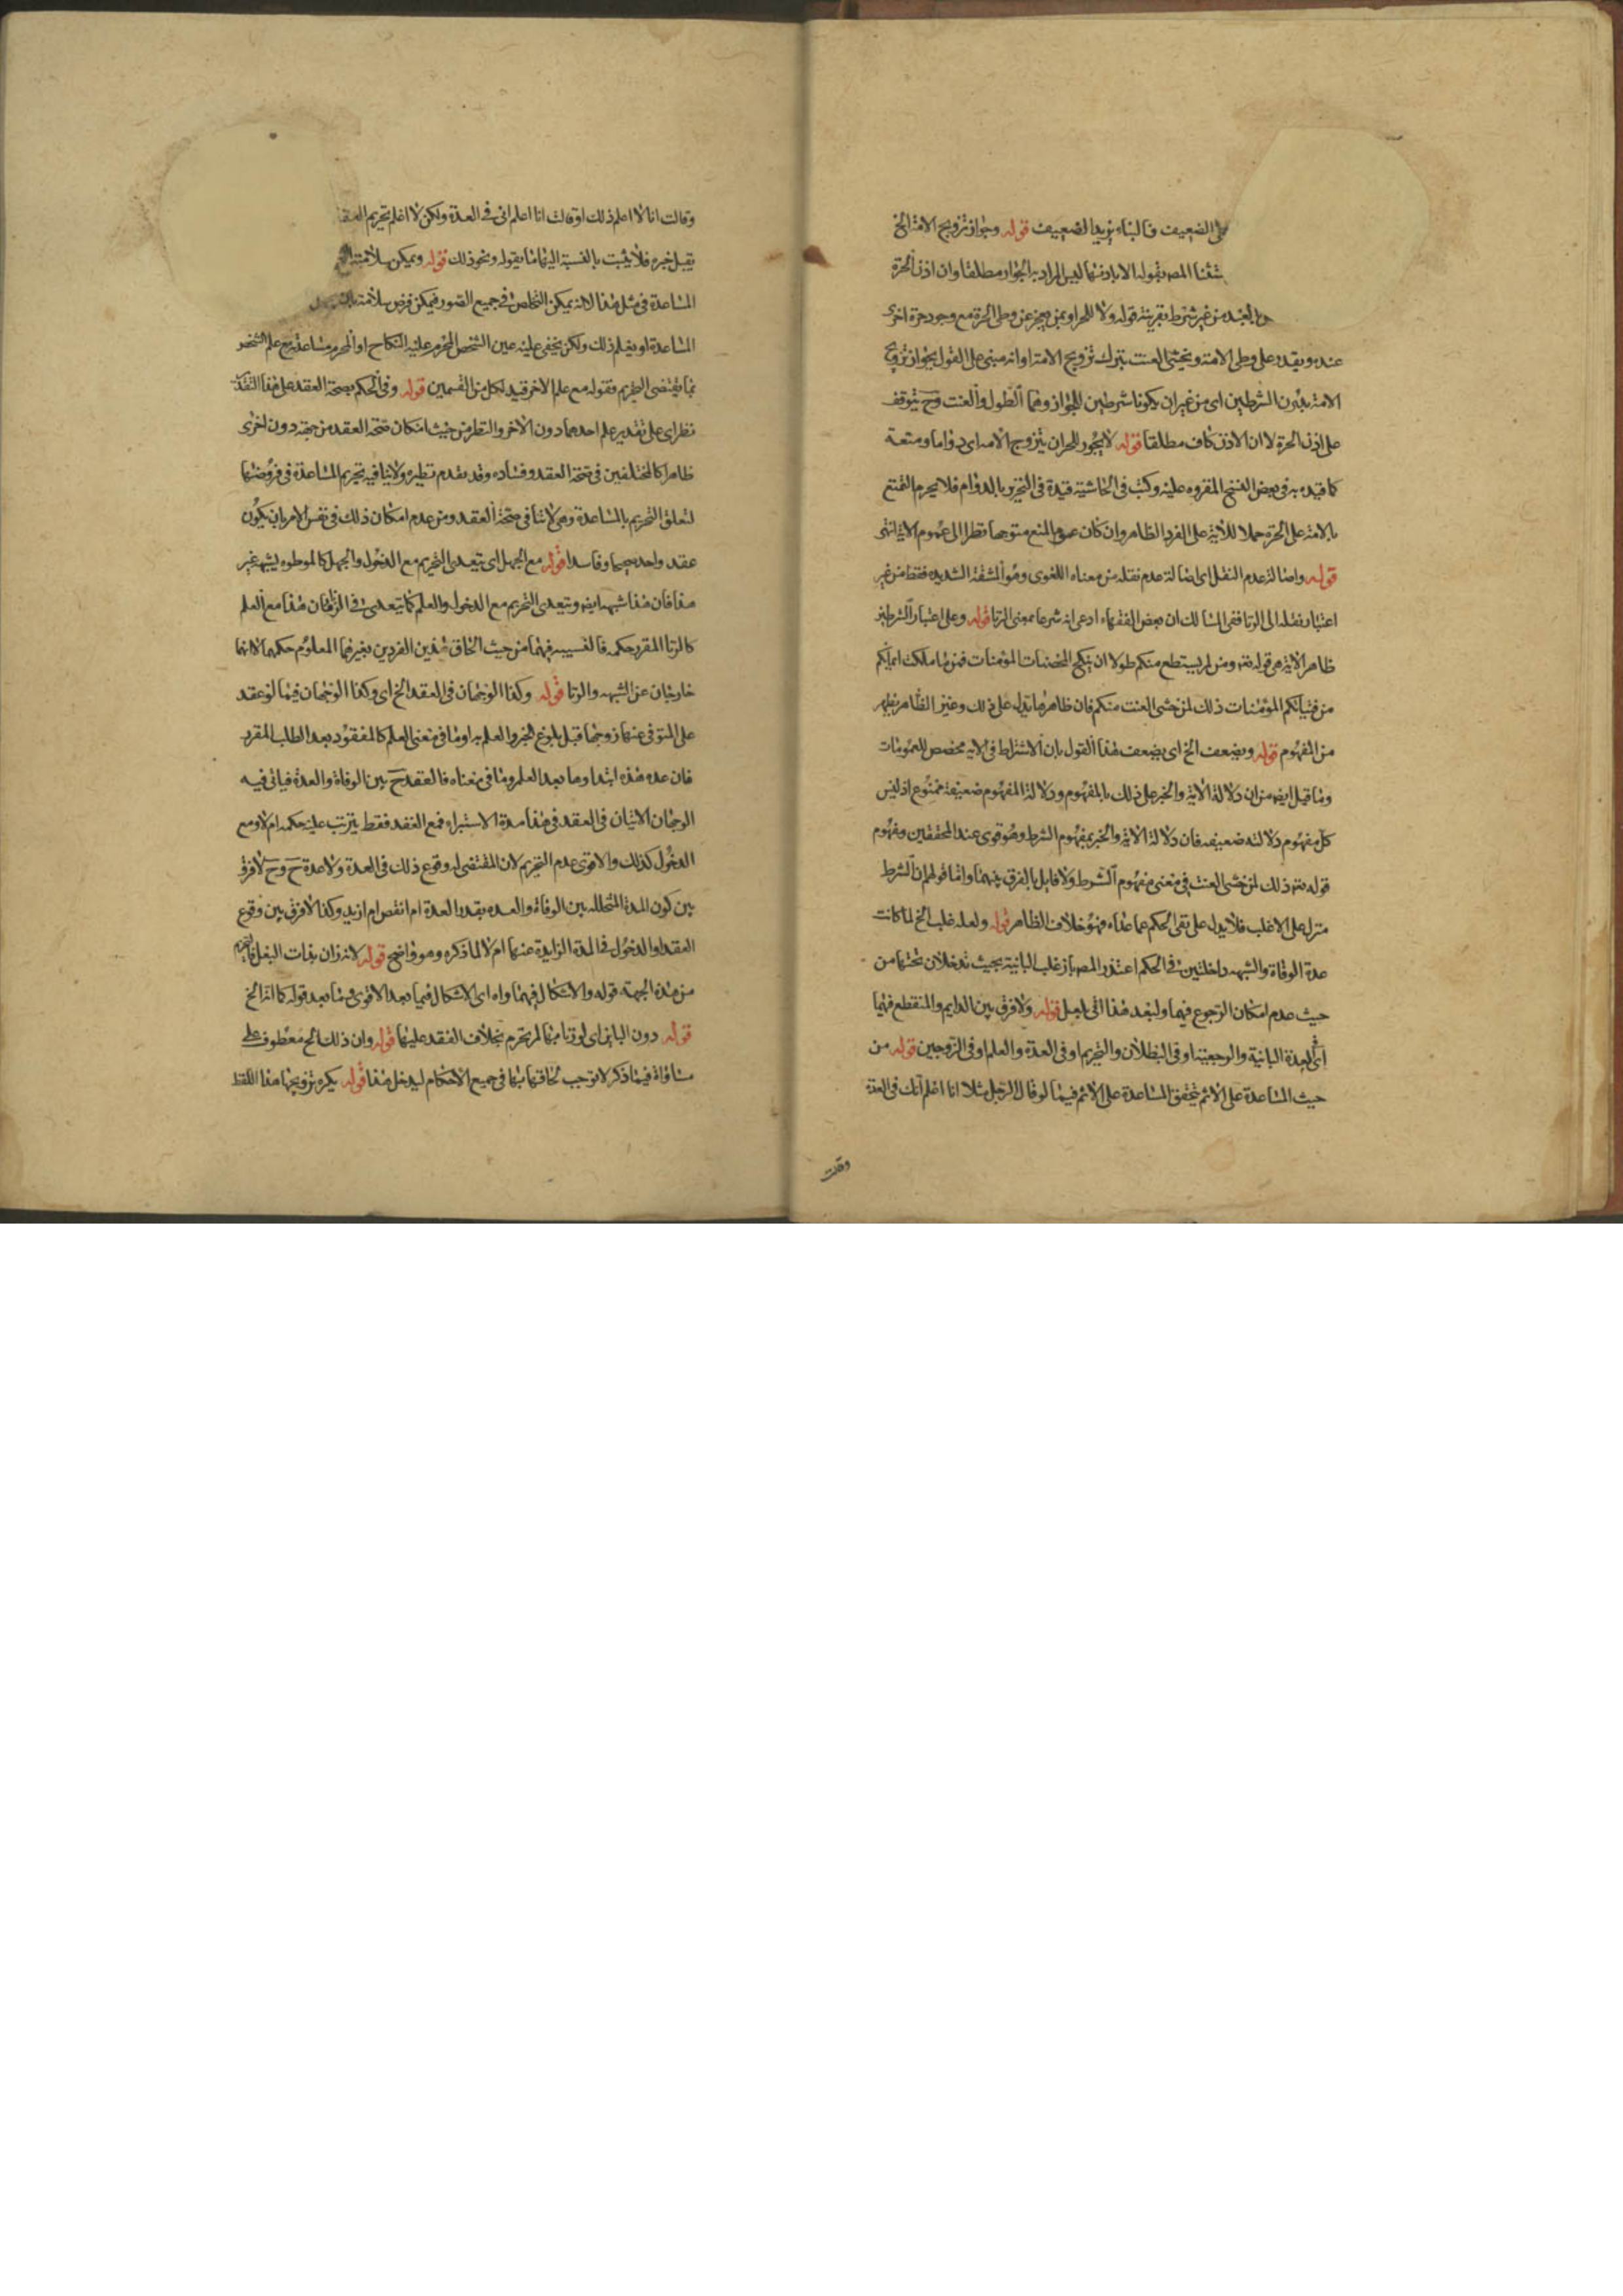 على الضعيف فالبناء يزيد الضعيف قوله وجواز تزويج الامة الخ
المص بقوله الا باذنها ليس المراد به الجواز مطلقا وان اذن الحرة
العبد من غير شرط بقرينة قوله ولا للحر او بمن يعجز عن وطى الحرة مع وجود حرة اخرى
عنده ويقدر على وطى الامة ويخشى العنت بترك تزويج الامة او انه مبنى على القول بجواز تزويج
الامة بدون الشرطين اى من غير ان يكونا شرطين للجواز وهما الطول والعنت وح يتوقف
على اذن الحرة لا ان الاذن كاف مطلقا قوله لا يجوز للحر ان يتزوج الامة اى دواما ومتعة
كما قيده به فى بعض النسخ المقروه عليه وكتب فى الحاشية قيده فى التحرير بالدوام فلا يحرم التمتع
بالامة على الحرة حملا للآية على الفرد الظاهر وان كان عموم المنع متوجها نظرا الى عموم الاية انتهى
قوله واصالة عدم النقل اى اصالة عدم نقله من معناه اللغوى وهو المشقة الشديده فقط من غير
اعتبار نقله الى الزنا ففى المسالك ان بعض الفقهاء ادعى انه شرعا بمعنى الزنا قوله وعلى اعتبار الشرطين
ظاهر الاية هى قوله تعه ومن لم يستطع منكم طولا ان ينكح المحصنات المؤمنات فمن ما ملكت ايمانكم
من فتياتكم المؤمنات ذلك لمن خشى العنت منكم فان ظاهرها يدل على ذلك وغير الظاهر يظهر
من المفهوم قوله ويضعف الخ اى يضعف هذا القول بان الاشتراط فى الاية مخصص للعمومات
وما قيل ايضه من ان دلالة الاية والخبر على ذلك بالمفهوم ودلالة المفهوم ضعيفة ممنوع اذ ليس
كل مفهوم دلالته ضعيفه فان دلالة الاية والخبر بمفهوم الشرط وهو قوى عند المحققين ومفهوم
قوله تعه ذلك لمن خشى العنت فى معنى مفهوم الشرط ولا قايل بالفرق بينهما واما قولهم ان الشرط
منزل على الاغلب فلا يدل على نفى الحكم عما عداه فهو خلاف الظاهر قوله ولعله غلب الخ لما كانت
عدة الوفاة والشبهه داخلتين فى الحكم اعتذر المص بان غلب البائنة بحيث تدخلان تحتها من
حيث عدم امكان الرجوع فيهما ولبعد هذا اتى بلعل قوله ولا فرق بين الدايم والمنقطع فيهما
اى العدة البائنية والرجعية او فى البطلان والتحريم او فى العدة والعلم او فى الزوجين قوله من
حيث المساعدة على الاثم يتحقق المساعدة على الاثم فيما لو قال الرجل مثلا انا اعلم انك فى العدة
وقالت
وقالت انا لا اعلم ذلك او قالت انا اعلم انى فى العدة ولكن لا اعلم تحريم العقد
يقبل خبره فلا يثبت بالنسبة اليها ما يقوله ونحو ذلك قوله ويمكن سلامته
المساعدة فى مثل هذا لانه يمكن التخلص فى جميع الصور فيمكن فرض سلامته
المساعدة او يعلم ذلك ولكن يخفى عليه عين الشخص المحرم عليه النكاح او المحرم مساعدته مع علم الشخص
بما يقتضى التحريم فقوله مع علم الاخر قيد لكل من القسمين قوله وفى الحكم بصحة العقد على هذا التقدير
نظر اى على تقدير علم احدهما دون الاخر والنظر من حيث امكان صحة العقد من جهة دون اخرى
ظاهرا كالمختلفين فى صحة العقد وفساده وقد تقدم نظيره ولا ينافيه تحريم المساعدة فى فروضها
لتعلق التحريم بالمساعدة وهى لا تنافى صحة العقد ومن عدم امكان ذلك فى نفس الامر بان يكون
عقد واحد صحيحا وفاسدا قوله مع الجهل اى يتعدى التحريم مع الدخول والجهل كالموطوه بشبهه غير
هذا فان هذا شبهه ايضه ويتعدى التحريم مع الدخول والعلم كما يتعدى فى الزنا فان هذا مع العلم
كالزنا المقرر حكمه فالتسبيه فيهما من حيث الحاق هذين الفردين بغيرهما المعلوم حكمهما لا انهما
خارجان عن الشبهه والزنا قوله وكذا الوجهان فى العقد الخ اى وكذا الوجهان فيما لو عقد
على المتوفى عنها زوجها قبل بلوغ الخبر والعلم به او ما فى معنى العلم كالمفقود بعد الطلب المقرر
فان عدة هذه ابتداوها بعد العلم وما فى معناه فالعقد ح بين الوفاة والعدة فياتى فيه
الوجهان الاتيان فى العقد فى هذا مدة الاستبراء فمع العقد فقط يترتب عليه حكمه ام لا ومع
الدخول كذلك والاقوى عدم التحريم لان المقتضى له وقوع ذلك فى العدة ولا عدة ح وح لا فرق
بين كون المدة المتخلله بين الوفاة والعدة بقدر العدة ام انقص ام ازيد وكذا لا فرق بين وقوع
العقد او الدخول فى المدة الزايدة عنها ام لا لما ذكره وهو واضح قوله لانه زان بذات البعل
من هذه الجهة قوله والاشكال فيهما واه اى الاشكال فيما بعد الاقوى وما بعد قوله كما انه الخ
قوله دون البائن اى لو زنا بها لم تحرم بخلاف العقد عليها قوله وان ذلك الخ معطوف على
مساواة فيما ذكر لا توجب الحاقها بها فى جميع الاحكام ليدخل هذا قوله يكره تزويجها هذا اللفظ